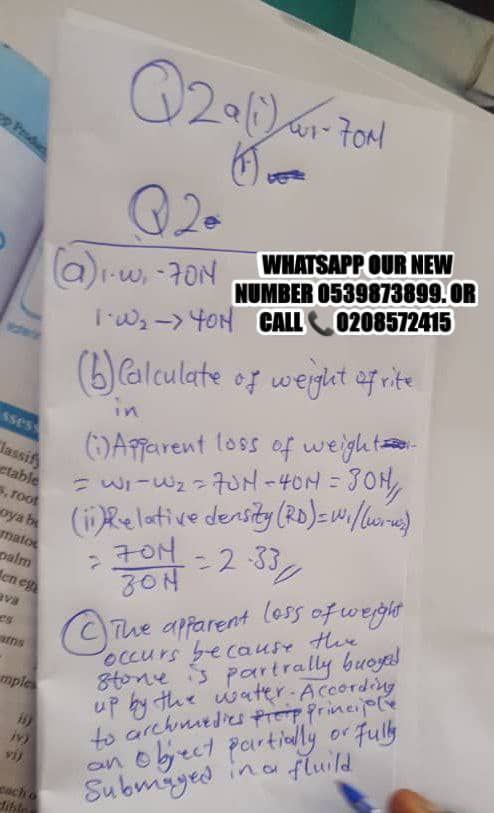 Q2a(i) W1-70N
(i)
Q2
(a) 1. W1 - 70N
WHATSAPP OUR NEW
NUMBER 0539873899. OR
CALL 📞 0208572415
1. W2 → 40N
(b) Calculate of weight of rite
in
(i) Apparent loss of weight
= W1 - W2 = 70N - 40N = 30N
(ii) Relative density (RD) = W1/(W1-W2)
= 70N/30N = 2.33
(c) The apparent loss of weight
occurs because the
stone is partrally buoyed
up by the water. According
to archmedies principle
an object partially or fully
Submaged in a fluild
ssess
lassify
etable
s, root
oya b
matoe
palm
len eg
ava
es
ams
mples
ii)
iv)
vi)
each o